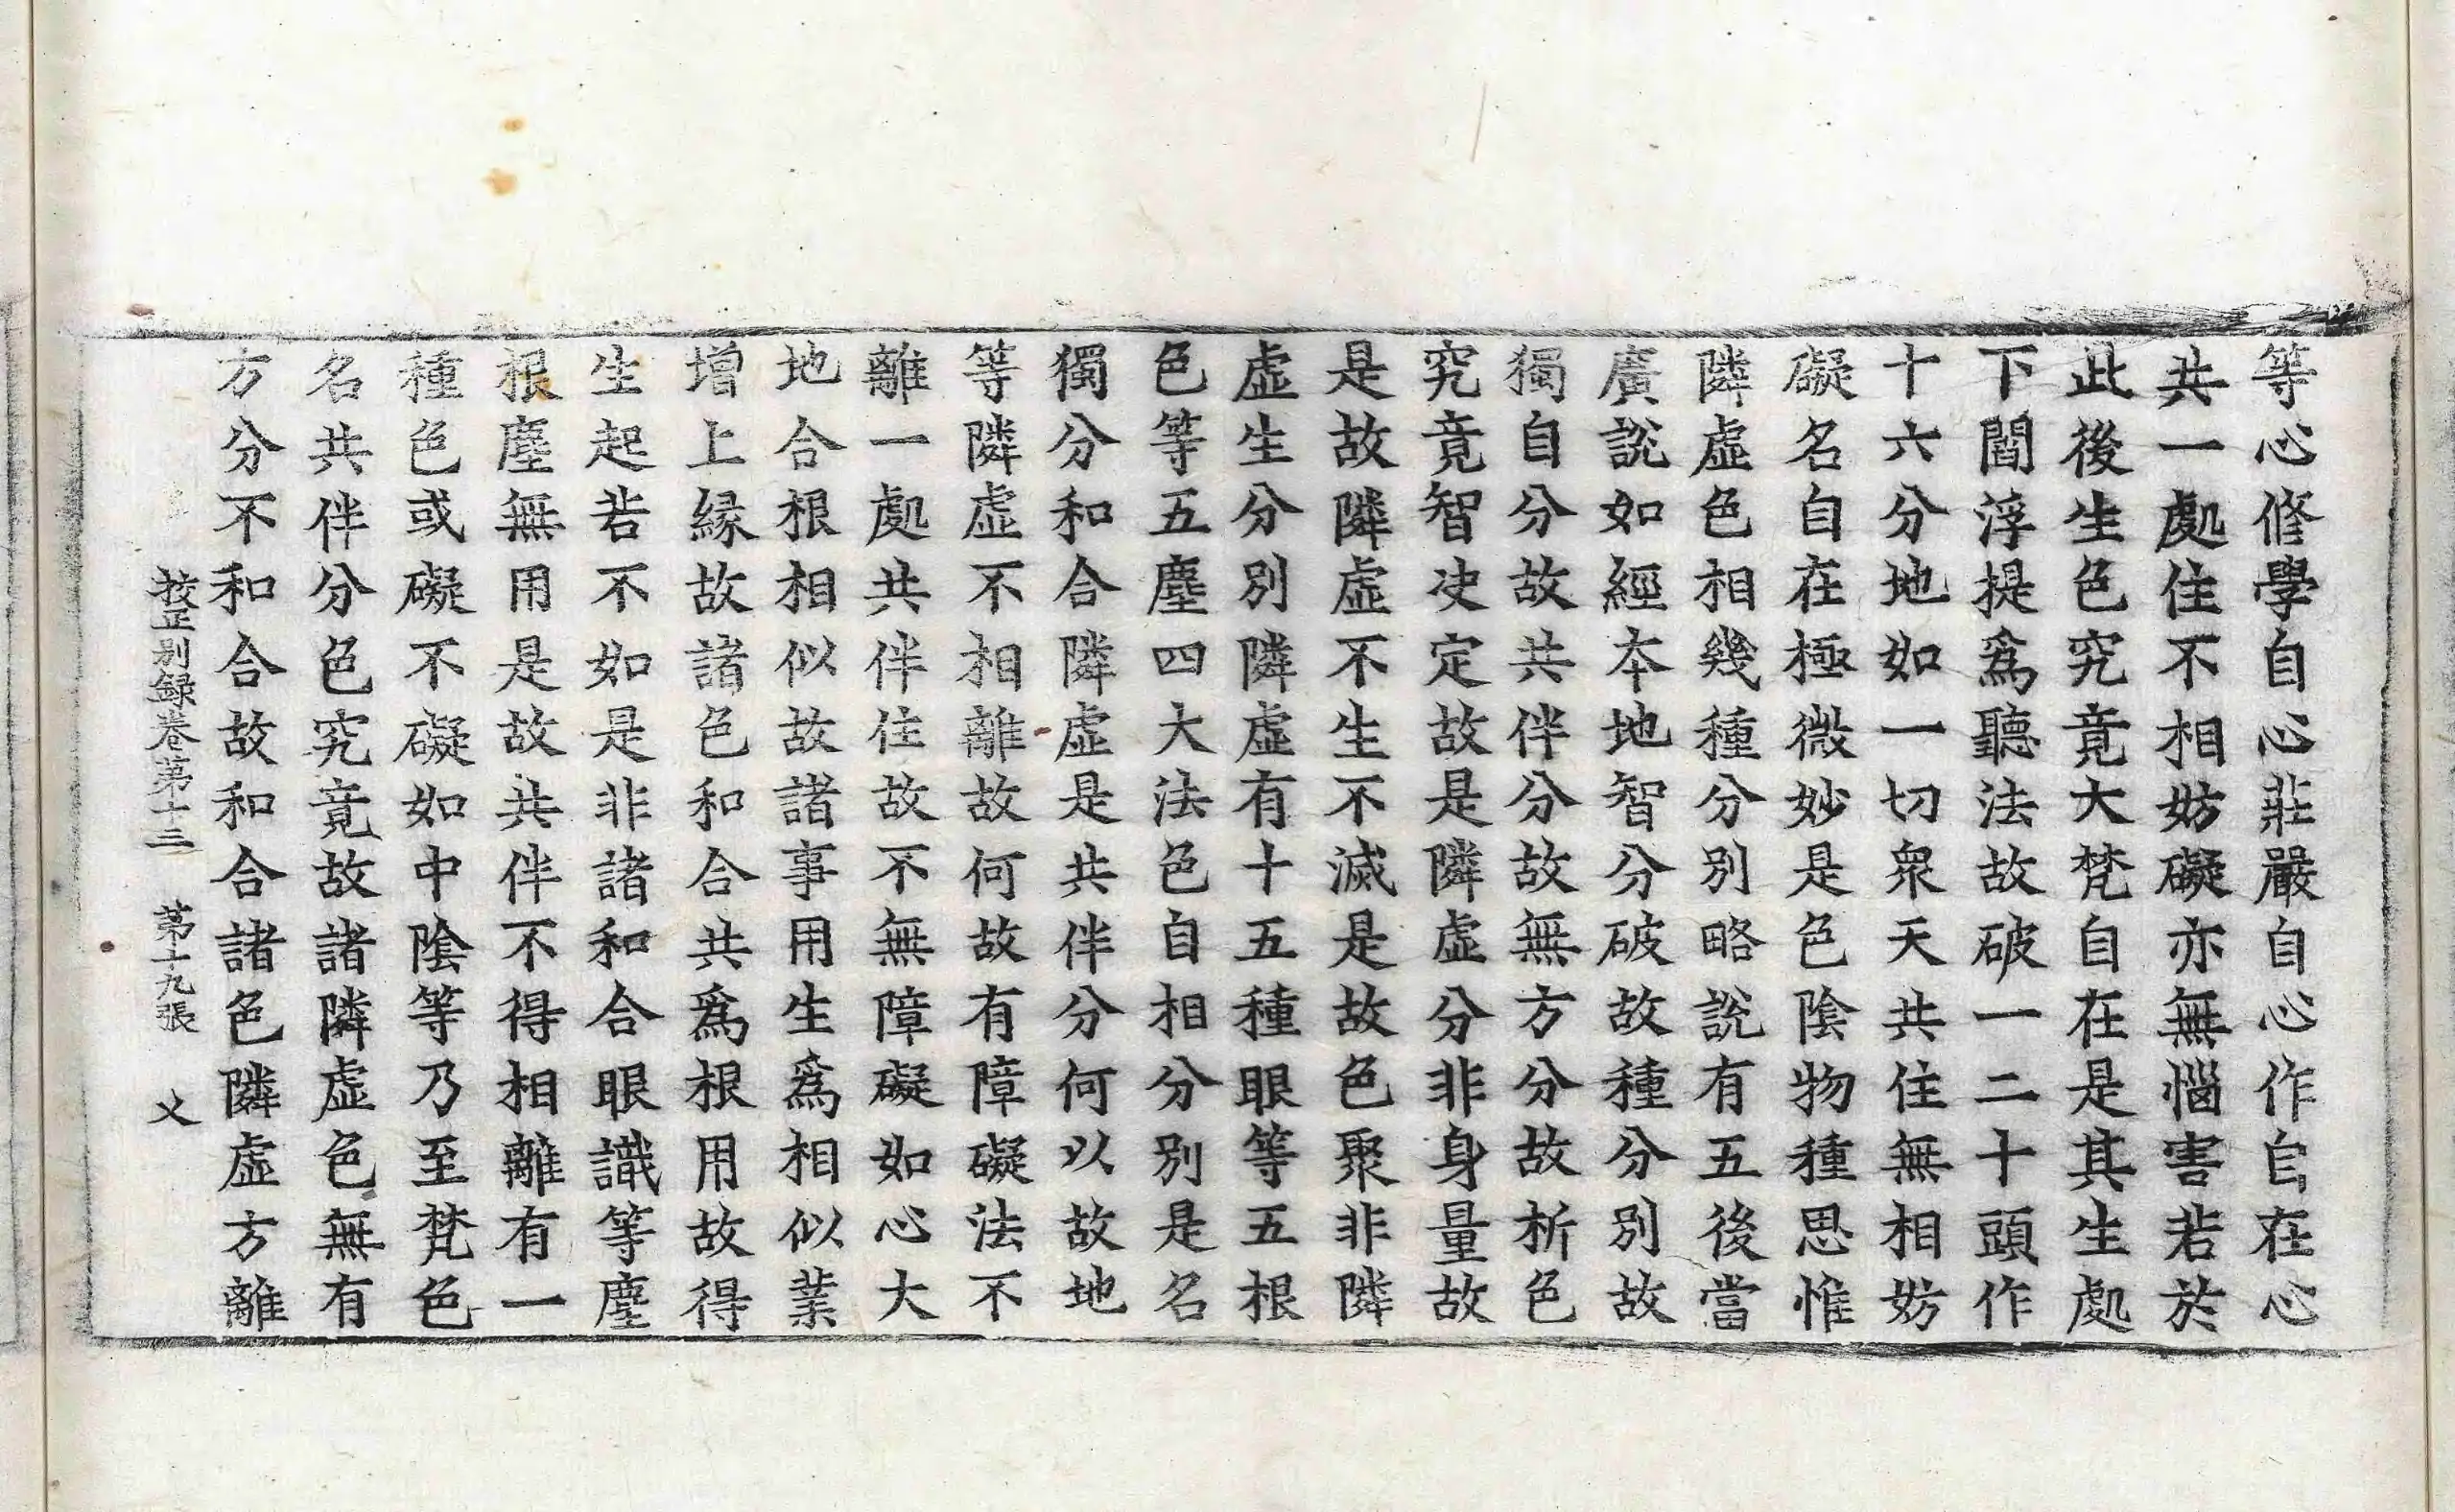 等心修學自心莊嚴自心作自在心
共一處住不相妨礙亦無惱害若於
此後生色究竟大梵自在是其生處
下閻浮提爲聽法故破一二十頭作
十六分地如一切衆天共住無相妨
礙名自在極微妙是色陰物種思惟
隣虛色相幾種分別略說有五後當
廣說如經本地智分破故種分別故
獨自分故共伴分故無方分故析色
究竟智决定故是隣虛分非身量故
是故隣虛不生不滅是故色聚非隣
虛生分別隣虛有十五種眼等五根
色等五塵四大法色自相分別是名
獨分和合隣虛是共伴分何以故地
等隣虛不相離故何故有障礙法不
離一處共伴住故不無障礙如心大
地合根相似故諸事用生爲相似業
增上緣故諸色和合共爲根用故得
生起若不如是非諸和合眼識等塵
根塵無用是故共伴不得相離有一
種色或礙不礙如中陰等乃至梵色
名共伴分色究竟故諸隣虛色無有
方分不和合故和合諸色隣虛方離
校正別錄卷第十三　第十九張　乂